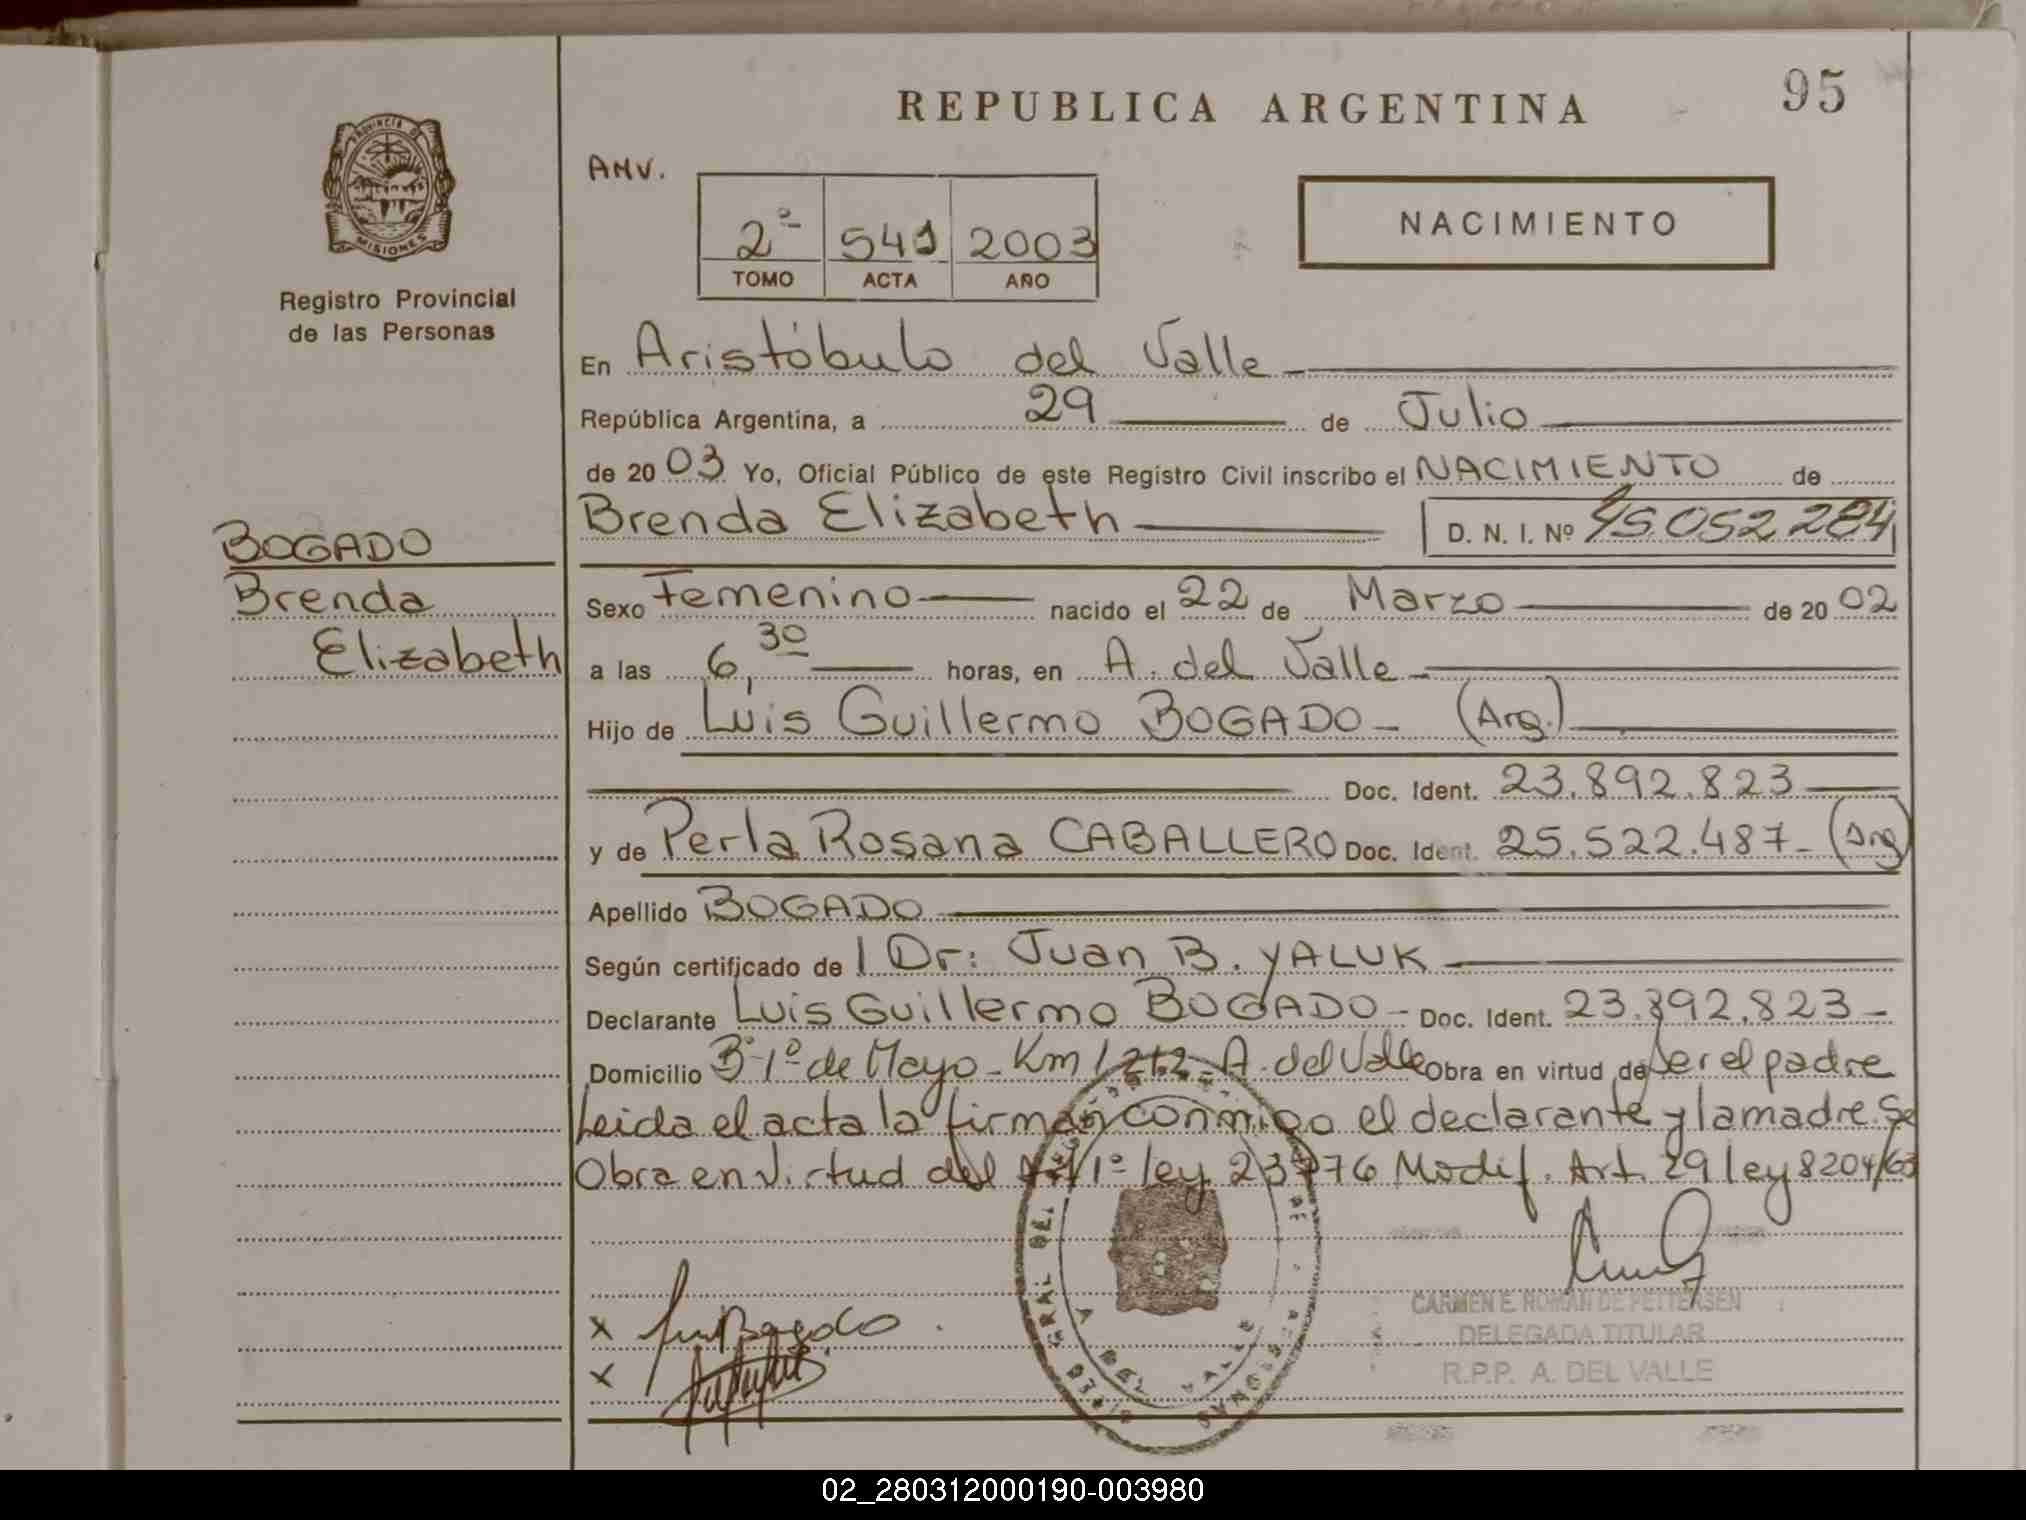 REPUBLICA ARGENTINA
95
PROVINCIA DE
MISIONES
Registro Provincial
de las Personas
ANV.
2º 541 2003
TOMO ACTA AÑO
NACIMIENTO
En Aristóbulo del Valle
República Argentina, a 29 de Julio
de 2003 Yo, Oficial Público de este Registro Civil inscribo el NACIMIENTO de
Brenda Elizabeth D. N. I. Nº 45.052.284
BOGADO
Brenda
Elizabeth
Sexo Femenino nacido el 22 de Marzo de 2002
a las 6,30 horas, en A. del Valle
Hijo de Luis Guillermo BOGADO - (Arg.)
Doc. Ident. 23.892.823
y de Perla Rosana CABALLERO Doc. Ident. 25.522.487 - (Arg)
Apellido BOGADO
Según certificado de Dr: Juan B. YALUK
Declarante Luis Guillermo BOGADO - Doc. Ident. 23.892.823 -
Domicilio Bº 1º de Mayo - Km 1212 - A. del Valle Obra en virtud de Ser el padre
Leida el acta la firman conmigo el declarante y la madre. Se
Obra en virtud del Art 1º ley 23776 Modif. Art. 29 ley 8204/63
CARMEN E. ROMAN DE PETTERSEN
DELEGADA TITULAR
R.P.P. A. DEL VALLE
A. DEL VALLE
MISIONES
02_280312000190-003980